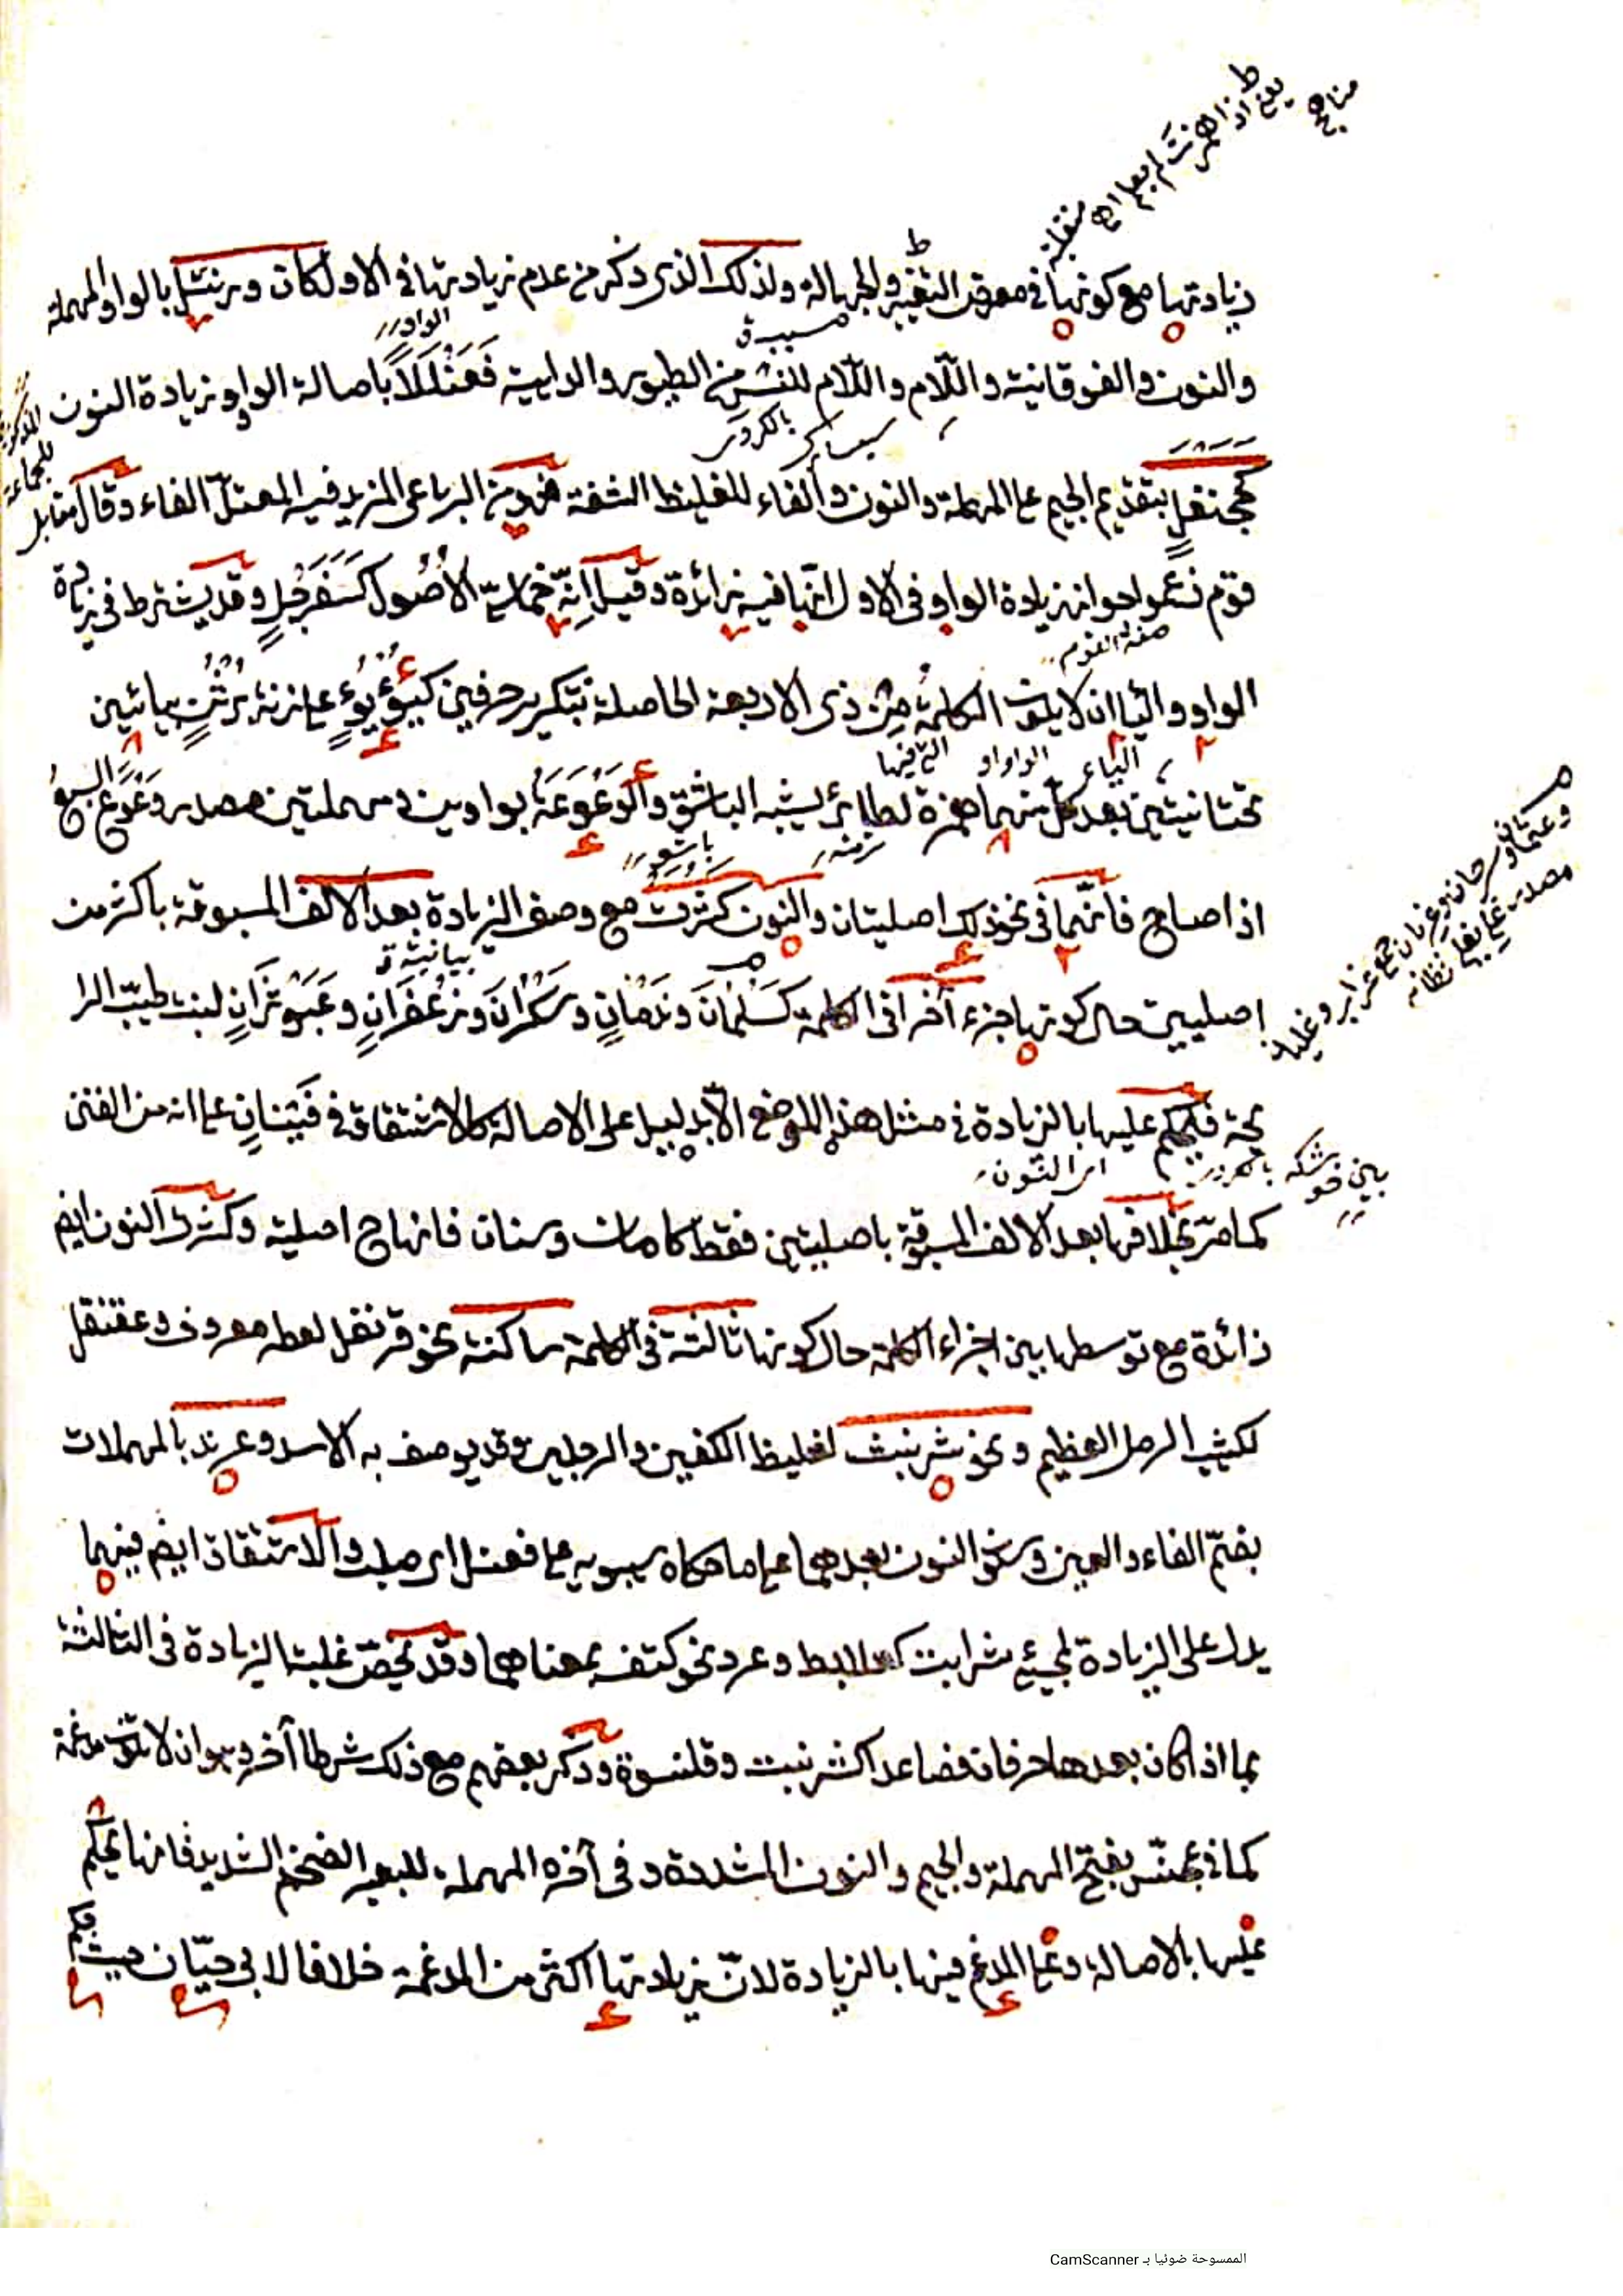 زيادتها مع كونها في معرض التغيير والجهالة ولذلك الذى ذكر من عدم زيادتها في الاول كان ورنتل بالواو والمهملة
والنون والفوقانية واللام واللام للشر من الطيور والداهية فَعَنْلَلًا باصالة الواو وزيادة النون
كجحنفل بتقديم الجيم على المهملة والنون والفاء للغليظ الشفة فهو من الرباعى المزيد فيه المعتل الفاء وقال
قوم زعموا جواز زيادة الواو فى الاول انها فيه زائدة وقيل انه خماسى الاصول كسفرجل وقد يشترط فى زيادة
الواو والياء ان لا يكون الكلمة من ذى الاربعة الحاصلة بتكرير حرفين كيُؤْيُؤٍ على زنة بُرْثُنٍ بيائين
تحتانيتين بعد كل منهما همزة لطائر يشبه الباشق والوَعْوَعَة بواوين ومهملتين مصدر وَعْوَعَ السبع
اذا صاح فانهما في نحو ذلك اصليتان والنون كثرت مع وصف الزيادة بعد الالف المسبوقة باكثر من
اصليين حال كونها جزء آخرا فى الكلمة كسَلْمَانَ ونَدْمَانٍ وسَكْرَانَ وزَعْفَرَانٍ وعَبَوْثَرَانٍ لنبت طيب الرا
يحة فيحكم عليها بالزيادة في مثل هذا الموضع الا بدليل على الاصالة كالاشتقاق في فَيْنَانٍ على انه من الفنن
كما مر بخلافها بعد الالف المسبوقة باصليتين فقط كامان وسنان فانها ح اصلية وكثرت النون ايض
زائدة مع توسطها بين اجزاء الكلمة حال كونها ثالثة فى الكلمة ساكنة نحو قرنفل لعطر معروف وعقنقل
لكثيب الرمل العظيم ونحو شرنبث لغليظ الكفين والرجلين وقد يوصف به الاسد وعرند بالمهملات
بضم الفاء والعين وسكون النون بعدهما على ما حكاه سيبويه على فعنل اى صلب والاشتقاق ايض فيهما
يدل على الزيادة لمجيئ شرابث كعلابط وعرد نحو كتف بمعناهما وقد يخص غلبة الزيادة فى الثالثة
بما اذا كان بعدها حرفان فصاعدا كشرنبث وقلنسوة وذكر بعضهم مع ذلك شرطا آخر وهو ان لا تكون مدغمة
كما في عجنّس بفتح المهملة والجيم والنون المشددة وفى آخره المهملة للبعير الضخم الشديد فانها يحكم
عليها بالاصالة وعلى المدغم فيها بالزيادة لان زيادتها اكثر من المدغمة خلافا لابى حيان حيث
الممسوحة ضوئيا بـ CamScanner